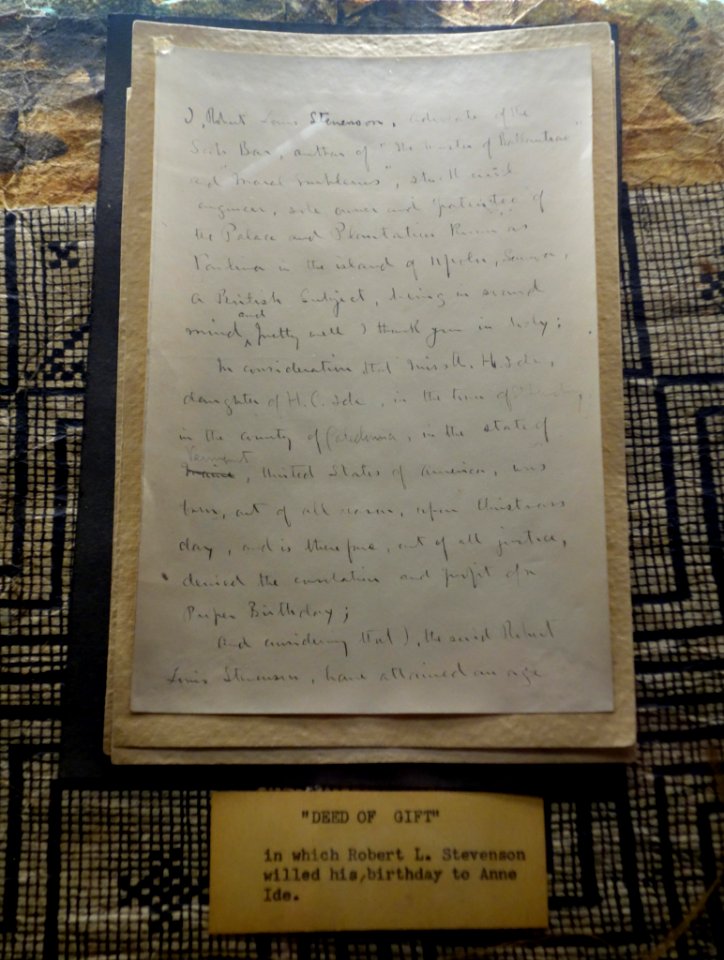 I, Robert Louis Stevenson, advocate of the
Scots Bar, author of "The Master of Ballantrae"
and "Moral Emblems", stuck civil
engineer, sole owner and patentee of
the Palace and Plantation known as
Vailima in the island of Upolu, Samoa,
a British Subject, being in sound
mind, and pretty well I thank you in body;
In consideration that Miss A. H. Ide,
daughter of H. C. Ide, in the town of
in the county of Caledonia, in the state of
Maine Vermont, United States of America, was
born, out of all reason, upon Christmas
day, and is therefore, out of all justice,
denied the consolation and profit of a
Proper Birthday;
And considering that I, the said Robert
Louis Stevenson, have attained an age
"DEED OF GIFT"
in which Robert L. Stevenson
willed his birthday to Anne
Ide.